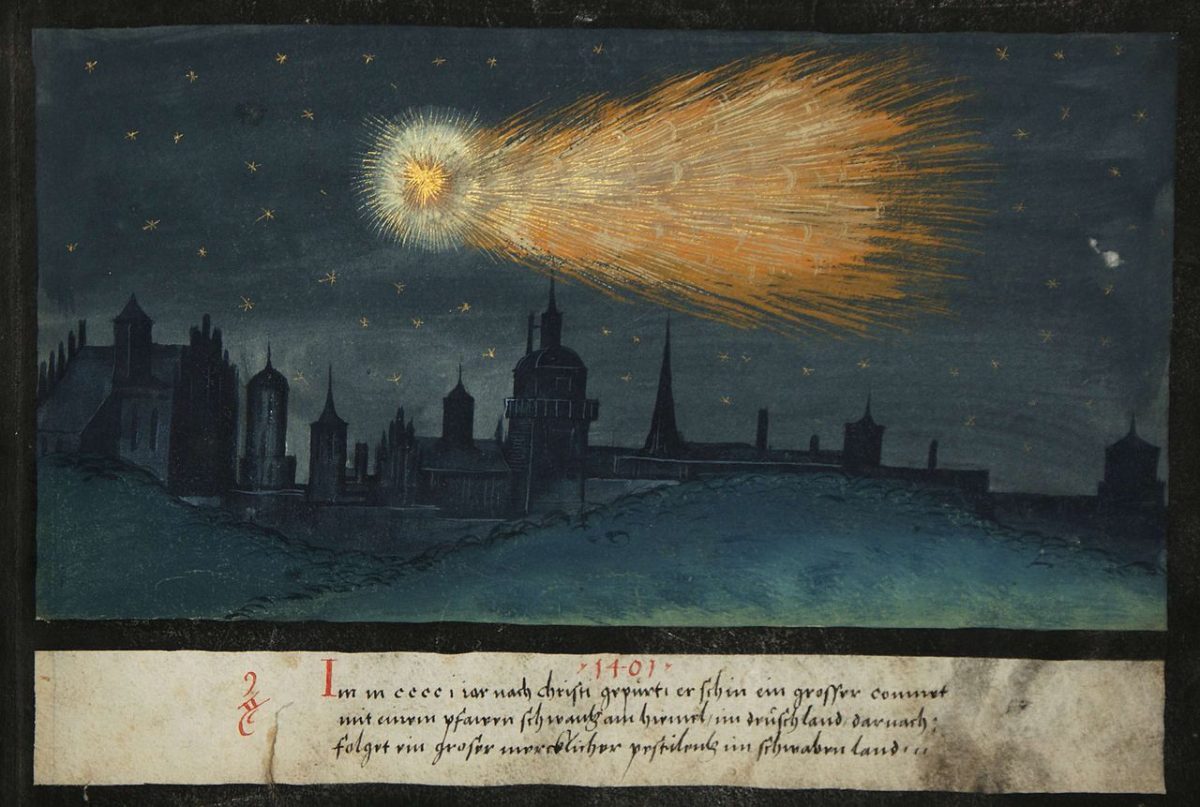 · 1401 ·
Im m cccc ı iar nach christi gepürt, er schin ein grosser comnet
mit einem pfawen schwantz am hiemel, im deuschland, darnach :
folget ein groser mercklicher pestilentz im schwaben land